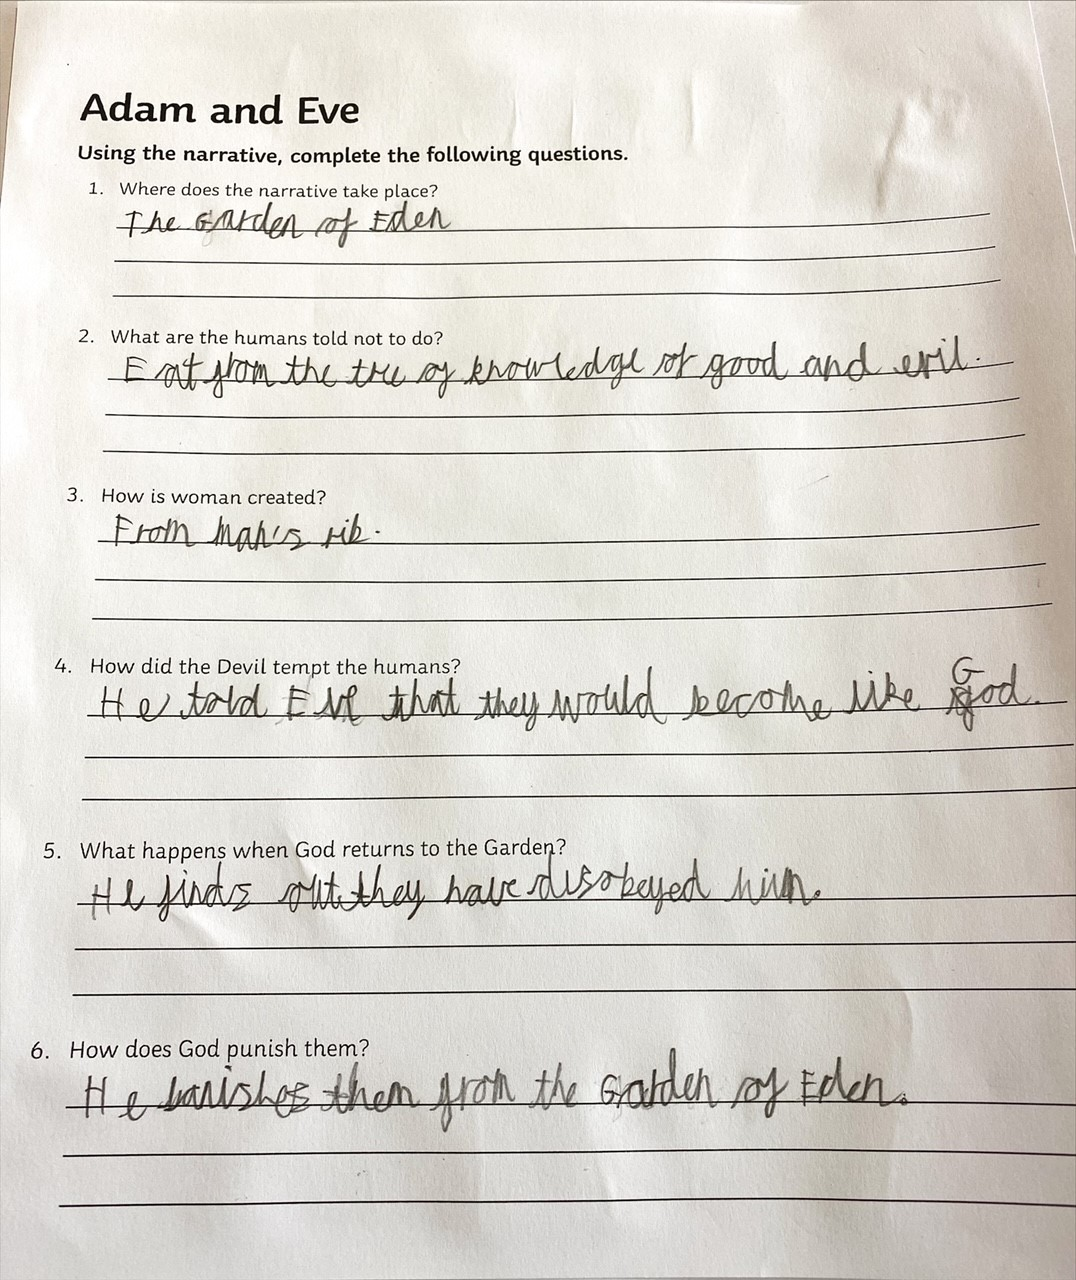 Adam and Eve
Using the narrative, complete the following questions.
1. Where does the narrative take place?
The Garden of Eden
2. What are the humans told not to do?
Eat from the tree of knowledge of good and evil.
3. How is woman created?
From man's rib.
4. How did the Devil tempt the humans?
He told Eve that they would become like God.
5. What happens when God returns to the Garden?
He finds out they have disobeyed him.
6. How does God punish them?
He banishes them from the Garden of Eden.